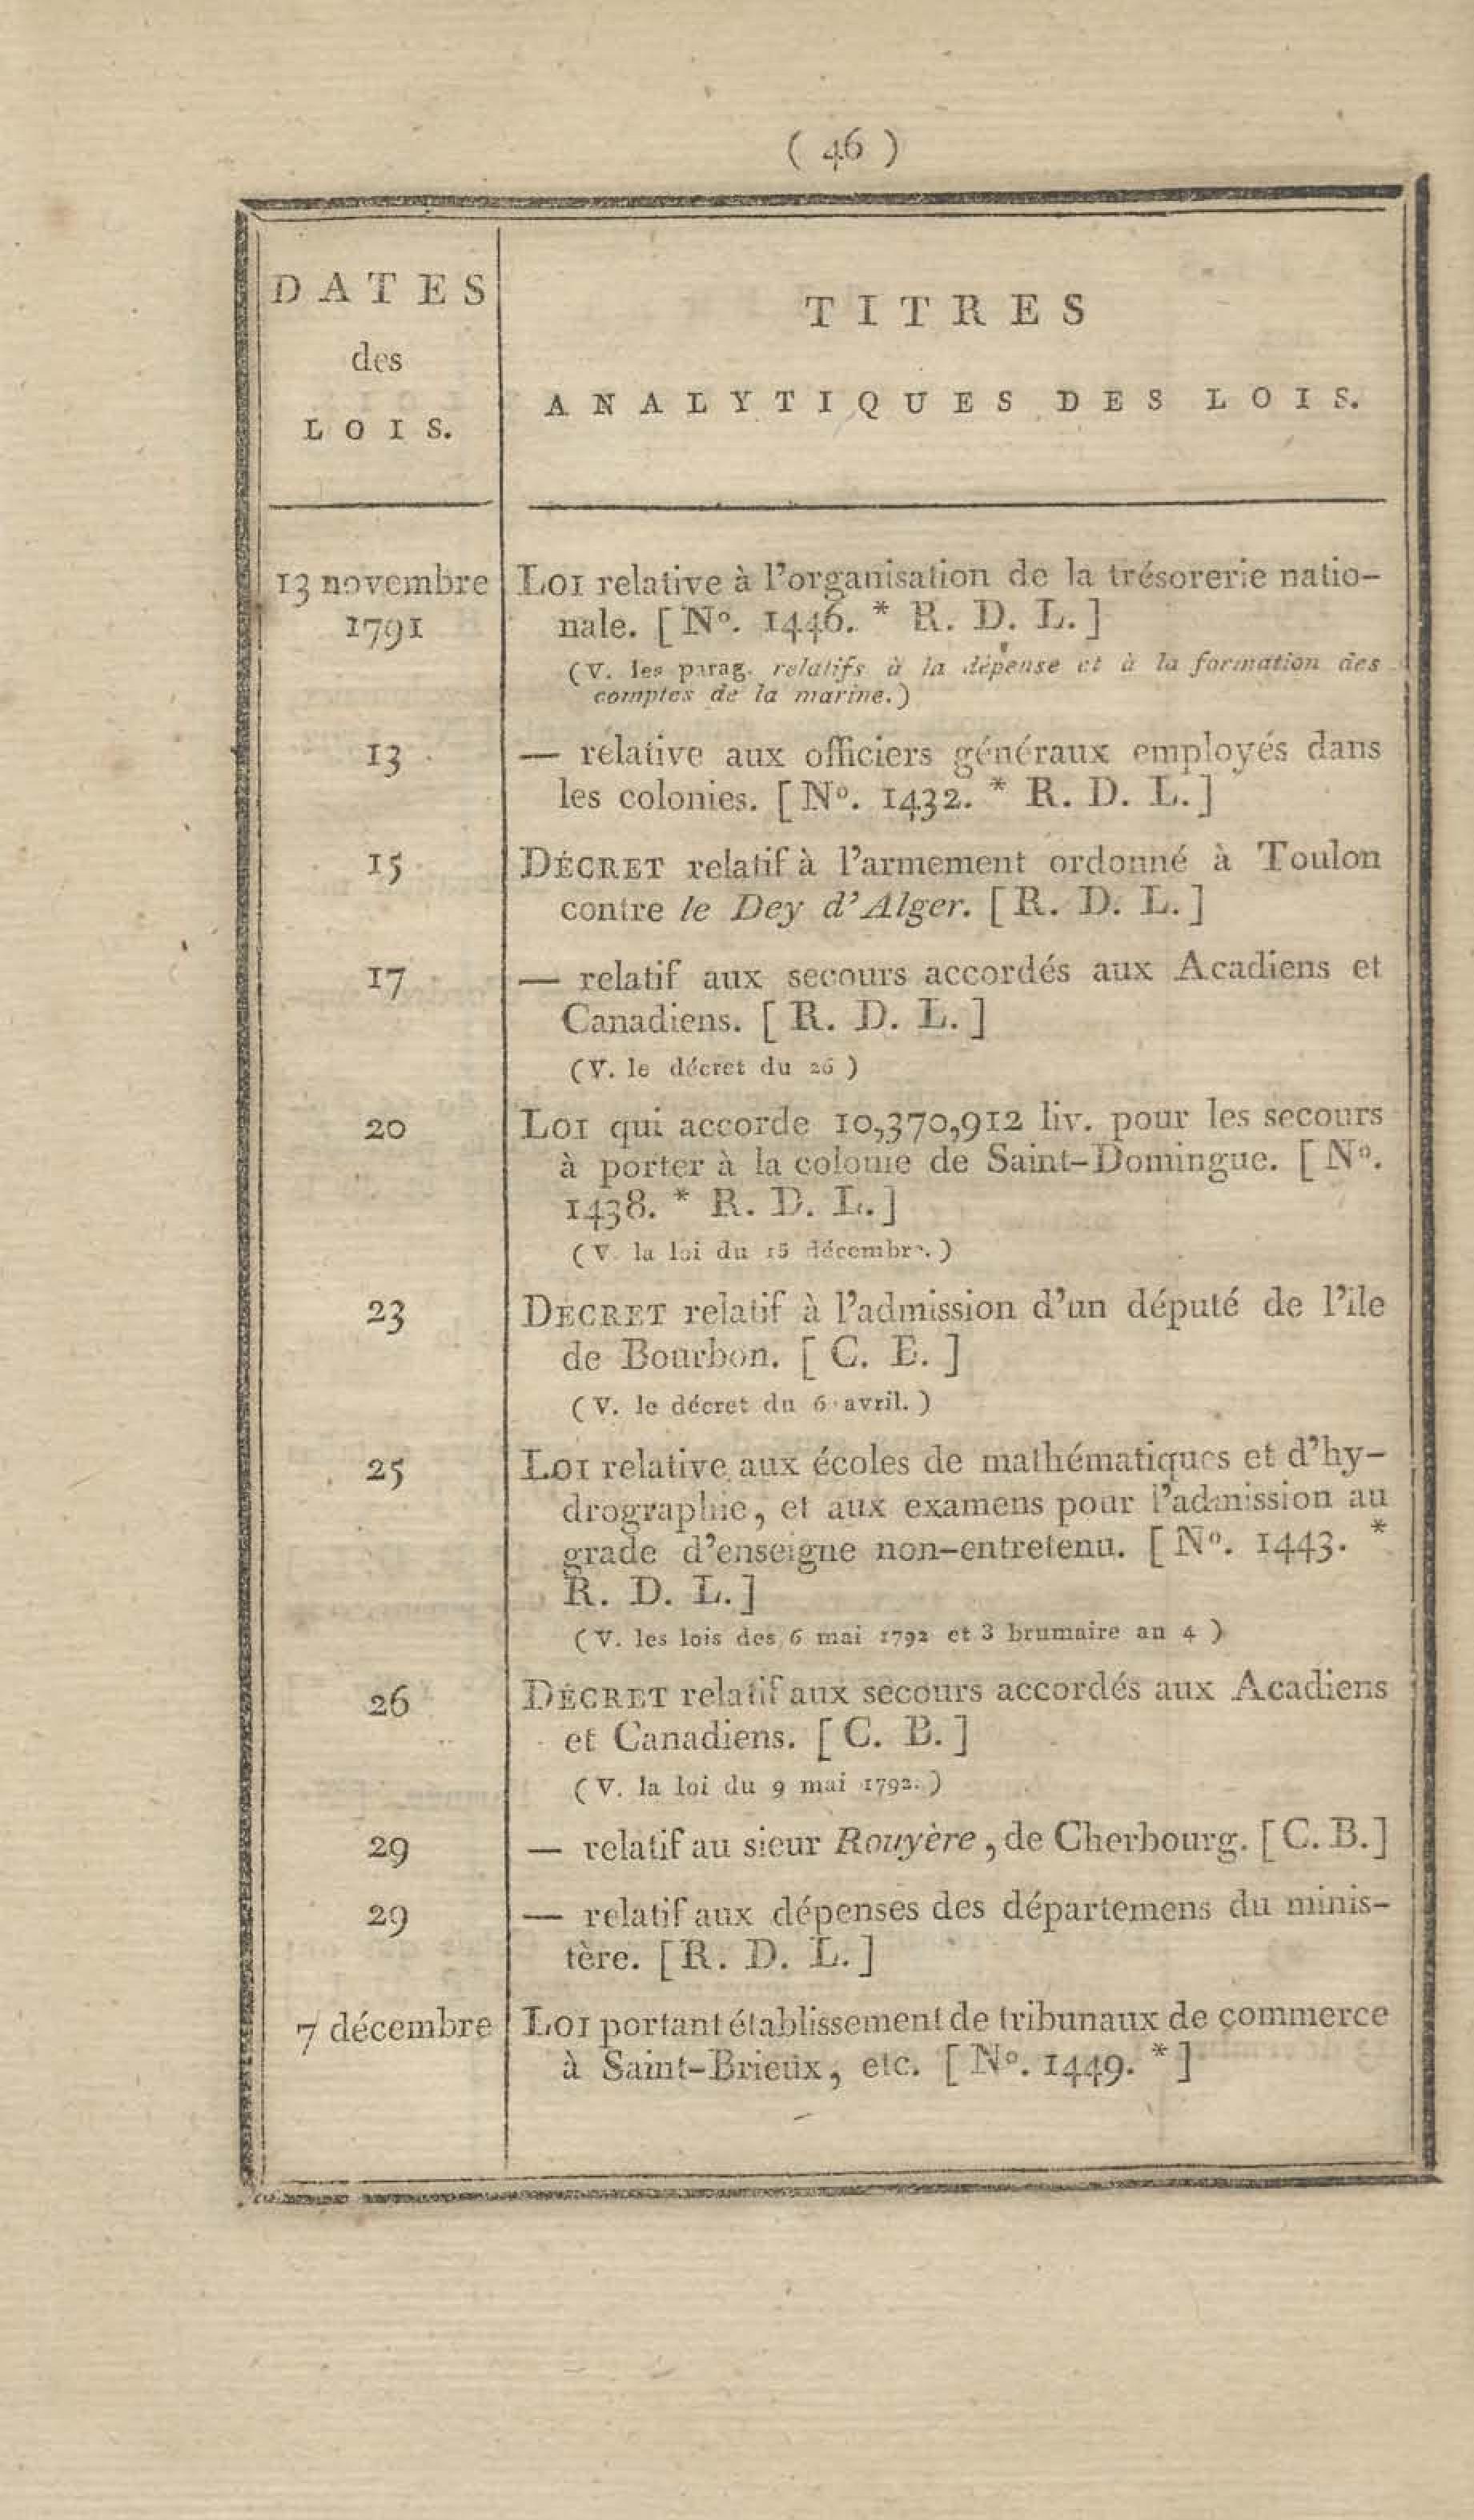 ( 46 )
DATES
des
LOIS.
TITRES
ANALYTIQUES DES LOIS.
13 novembre
1791
LOI relative à l'organisation de la trésorerie natio-
nale. [ N°. 1446. * R. D. L. ]
(V. les parag. relatifs à la dépense et à la formation des
comptes de la marine.)
13
— relative aux officiers généraux employés dans
les colonies. [ N°. 1432. * R. D. L. ]
15
DÉCRET relatif à l'armement ordonné à Toulon
contre le Dey d'Alger. [ R. D. L. ]
17
— relatif aux secours accordés aux Acadiens et
Canadiens. [ R. D. L. ]
(V. le décret du 26 )
20
LOI qui accorde 10,370,912 liv. pour les secours
à porter à la colonie de Saint-Domingue. [ N°.
1438. * R. D. L. ]
( V. la loi du 15 décembre. )
23
DÉCRET relatif à l'admission d'un député de l'ile
de Bourbon. [ C. B. ]
( V. le décret du 6 avril. )
25
LOI relative aux écoles de mathématiques et d'hy-
drographie, et aux examens pour l'admission au
grade d'enseigne non-entretenu. [ N°. 1443. *
R. D. L. ]
( V. les lois des 6 mai 1792 et 3 brumaire an 4 )
26
DÉCRET relatif aux secours accordés aux Acadiens
et Canadiens. [ C. B. ]
( V. la loi du 9 mai 1792. )
29
— relatif au sieur Rouyère, de Cherbourg. [ C. B. ]
29
— relatif aux dépenses des départemens du minis-
tère. [ R. D. L. ]
7 décembre
LOI portant établissement de tribunaux de commerce
à Saint-Brieux, etc. [ N°. 1449. * ]